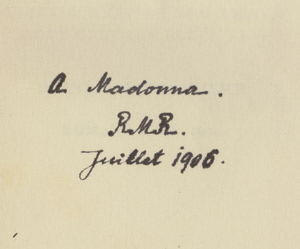 A Madonna.
RMR.
Juillet 1906.